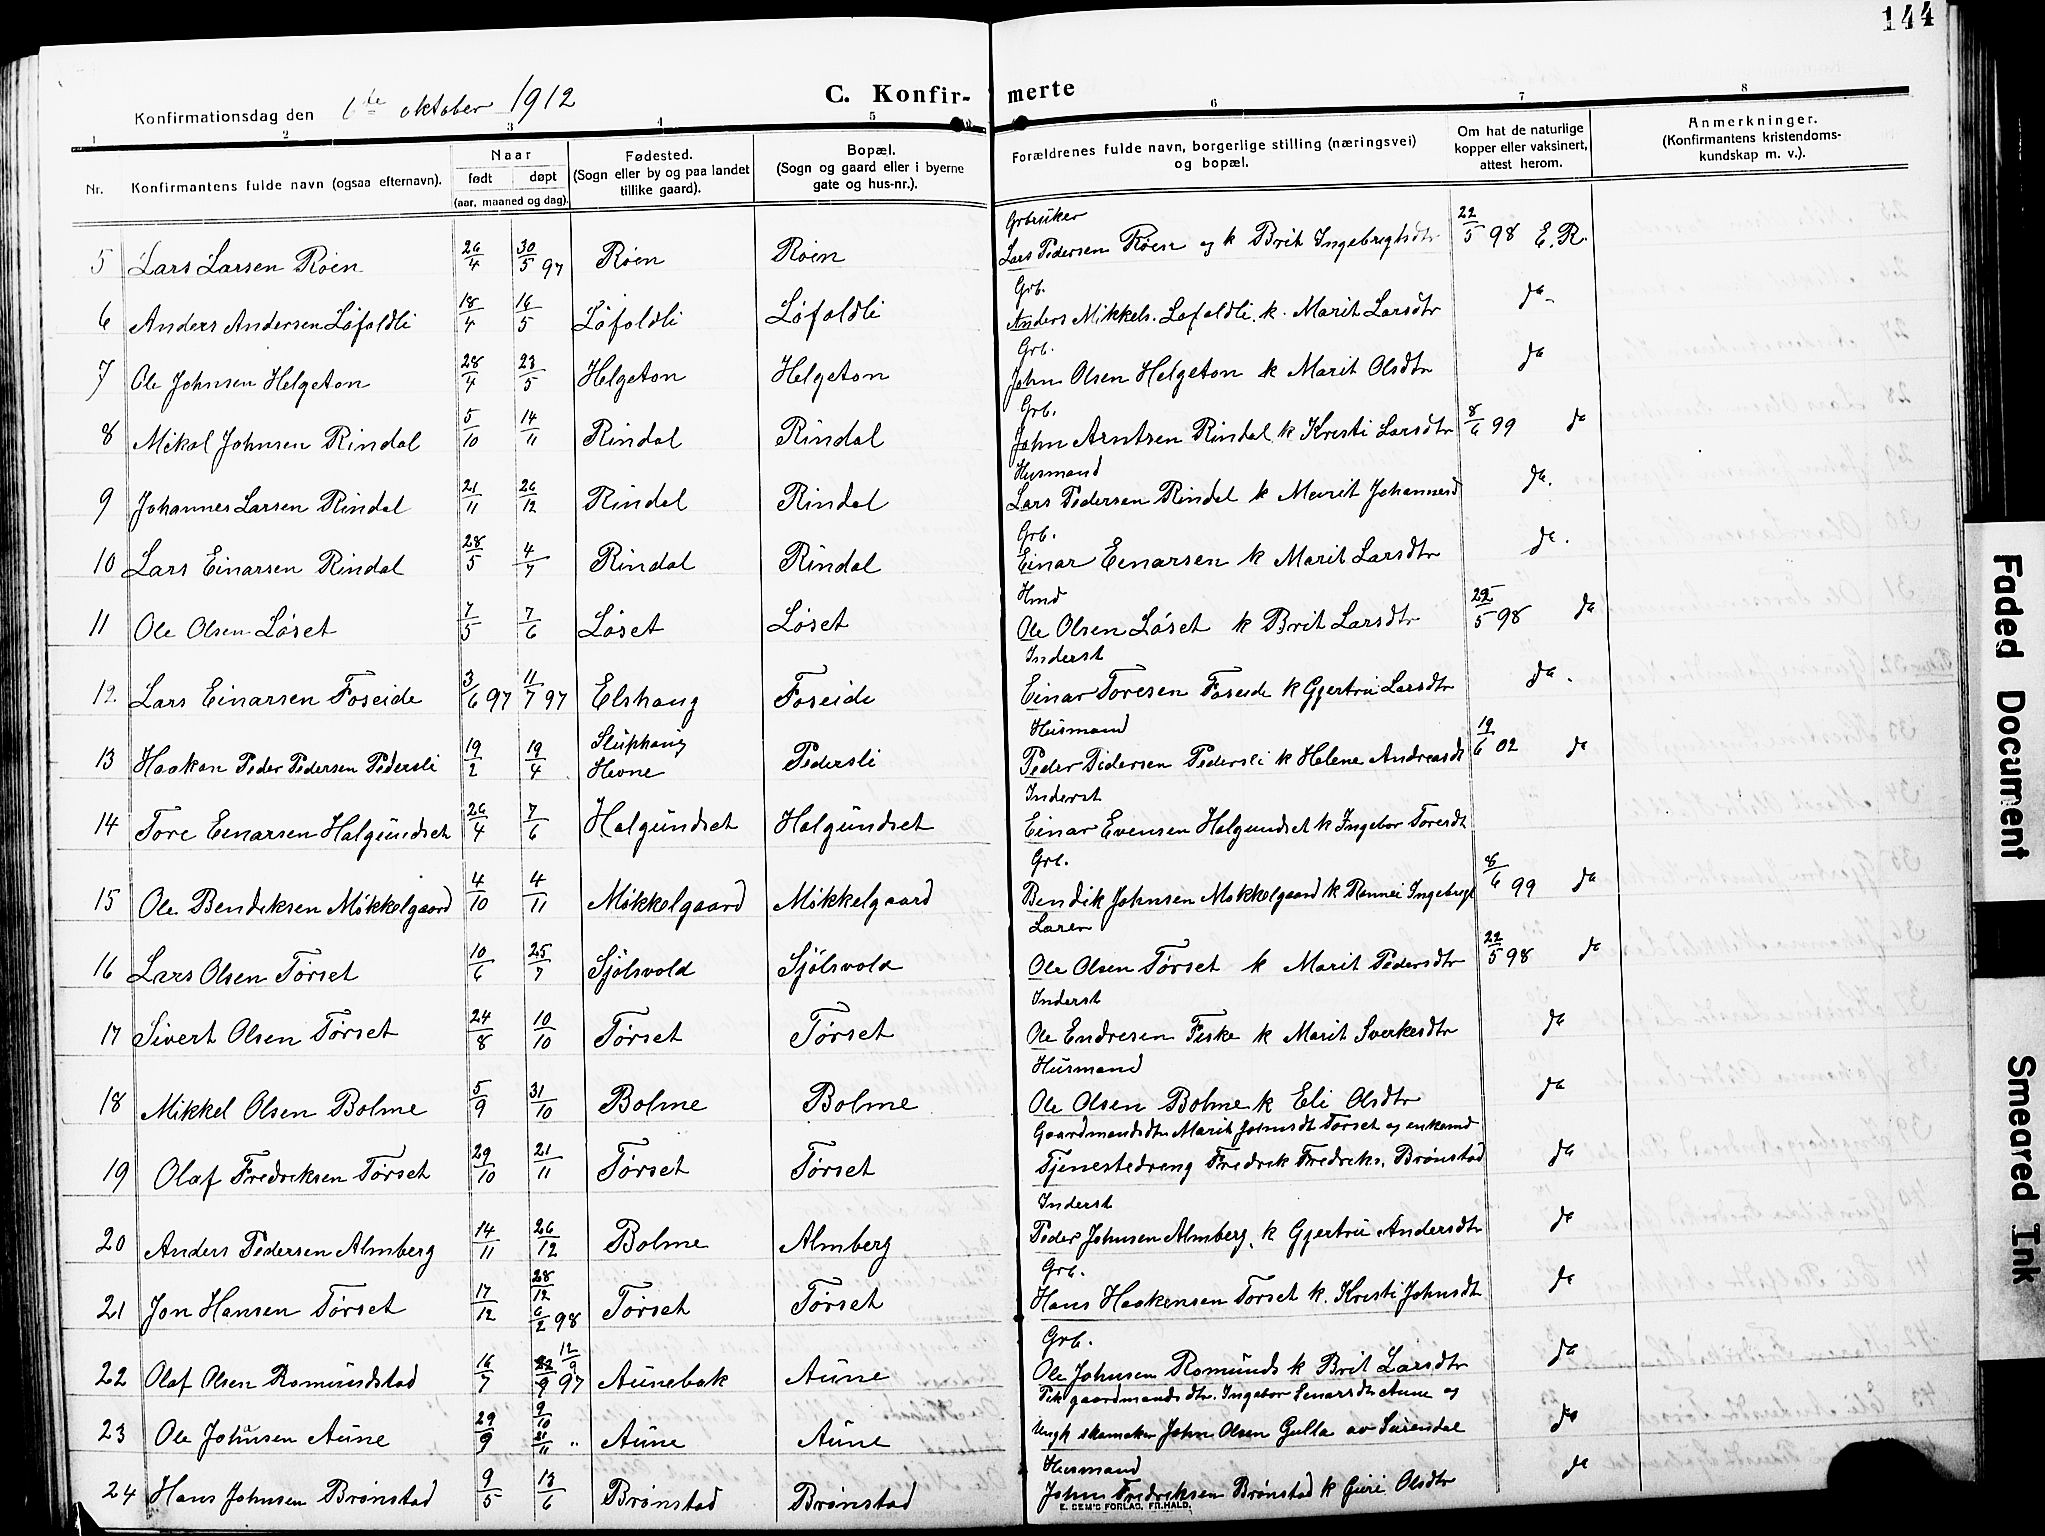 144
Konfirmationsdag den 6te oktober 1912 C. Konfir- merte
1 2 3 4 5 6 7 8
Nr. Konfirmantens fulde navn (ogsaa efternavn). Naar født døpt (aar, maaned og dag). Fødested. (Sogn eller by og paa landet tillike gaard). Bopæl. (Sogn og gaard eller i byerne gate og hus-nr.). Forældrenes fulde navn, borgerlige stilling (næringsvei) og bopæl. Om hat de naturlige kopper eller vaksinert, attest herom. Anmerkninger. (Konfirmantens kristendoms- kundskap m. v.).
Grbruker
5 Lars Larsen Røen 26/4 30/5 97 Røen Røen Lars Pedersen Røen og k Brit Ingebrigtsdtr 22/5 98 E. R.
Grb.
6 Anders Andersen Løfaldli 18/4 16/5 Løfaldli Løfaldli Anders Mikkels. Løfaldli. k. Marit Larsdtr do
Grb.
7 Ole Johnsen Helgeton 28/4 23/5 Helgeton Helgeton John Olsen Helgeton k Marit Olsdtr do
Grb.
8 Mikal Johnsen Rindal 5/10 14/11 Rindal Rindal John Arntsen Rindal k Kristi Larsdtr 8/6 99 do
Husmand
9 Johannes Larsen Rindal 21/11 26/12 Rindal Rindal Lars Pedersen Rindal k Marit Johannesd do.
Grb.
10 Lars Einarsen Rindal 28/5 4/7 Rindal Rindal Einar Einarsen k Marit Larsdtr do.
Hmd
11 Ole Olsen Løset 7/5 7/6 Løset Løset Ole Olsen Løset k Brit Larsdtr 22/5 98 do
Inderst
12 Lars Einarsen Foseide 3/6 97 11/7 97 Elshaug Foseide Einar Toresen Foseide k Gjertru Larsdtr do.
Husmand
13 Haakon Peder Pedersen Pedersli 19/2 19/4 Hevne Pedersli Peder Pedersen Pedersli k Helene Andreasdt 19/6 02 do
Inderst
14 Tore Einarsen Halgundset 26/4 7/6 Halgundset Halgundset Einar Evensen Halgundset k Ingebor Toresdt
Grb.
15 Ole Bendiksen Møkkelgaard 4/10 4/11 Møkkelgaard Møkkelgaard Bendik Johnsen Møkkelgaard k Rannei Ingebrigt 8/6 99 do
Lærer
16 Lars Olsen Tørset 10/6 25/7 Sjølsvold Sjølsvold Ole Olsen Tørset k Marit Pedersdtr 22/5 98 do
Inderst
17 Sivert Olsen Tørset 24/8 10/10 Tørset Tørset Ole Endresen Fiske k Marit Sverkesdtr do
Husmand
18 Mikkel Olsen Bolme 5/9 31/10 Bolme Bolme Ole Olsen Bolme k Eli Olsdtr do
Gaardmandsdtr Marit Johnsdt Tørset og enkemd
19 Olaf Fredriksen Tørset 29/10 21/11 Tørset Tørset Tjenestedreng Fredrik Fredriks. Brønstad do
Inderst
20 Anders Pedersen Almberg 14/11 26/12 Bolme Almberg Peder Johnsen Almberg, k Gjertru Andersdtr do
Grb.
21 Jon Hansen Tørset 17/12 28/12 6/2 98 Tørset Tørset Hans Haakensen Tørset k. Kristi Johnsdt do
Grb.
22 Olaf Olsen Romundstad 16/7 12/9 97 Aunebak Aune Ole Johnsen Romunds k Brit Larsdtr do
Pik gaardmandsdtr. Ingebor Aune og
23 Ole Johnsen Aune 29/9 9/10 21/11 " Aune Aune Ungk skomaker John Olsen Gulla av Surendal do
Husmand
24 Hans Johnsen Brønstad 9/5 13/6 Brønstad Brønstad John Fredriksen Brønstad k Guri Olsdtr do
E. SEM'S FORLAG, FR.HALD.
Faded Document
Smeared Ink